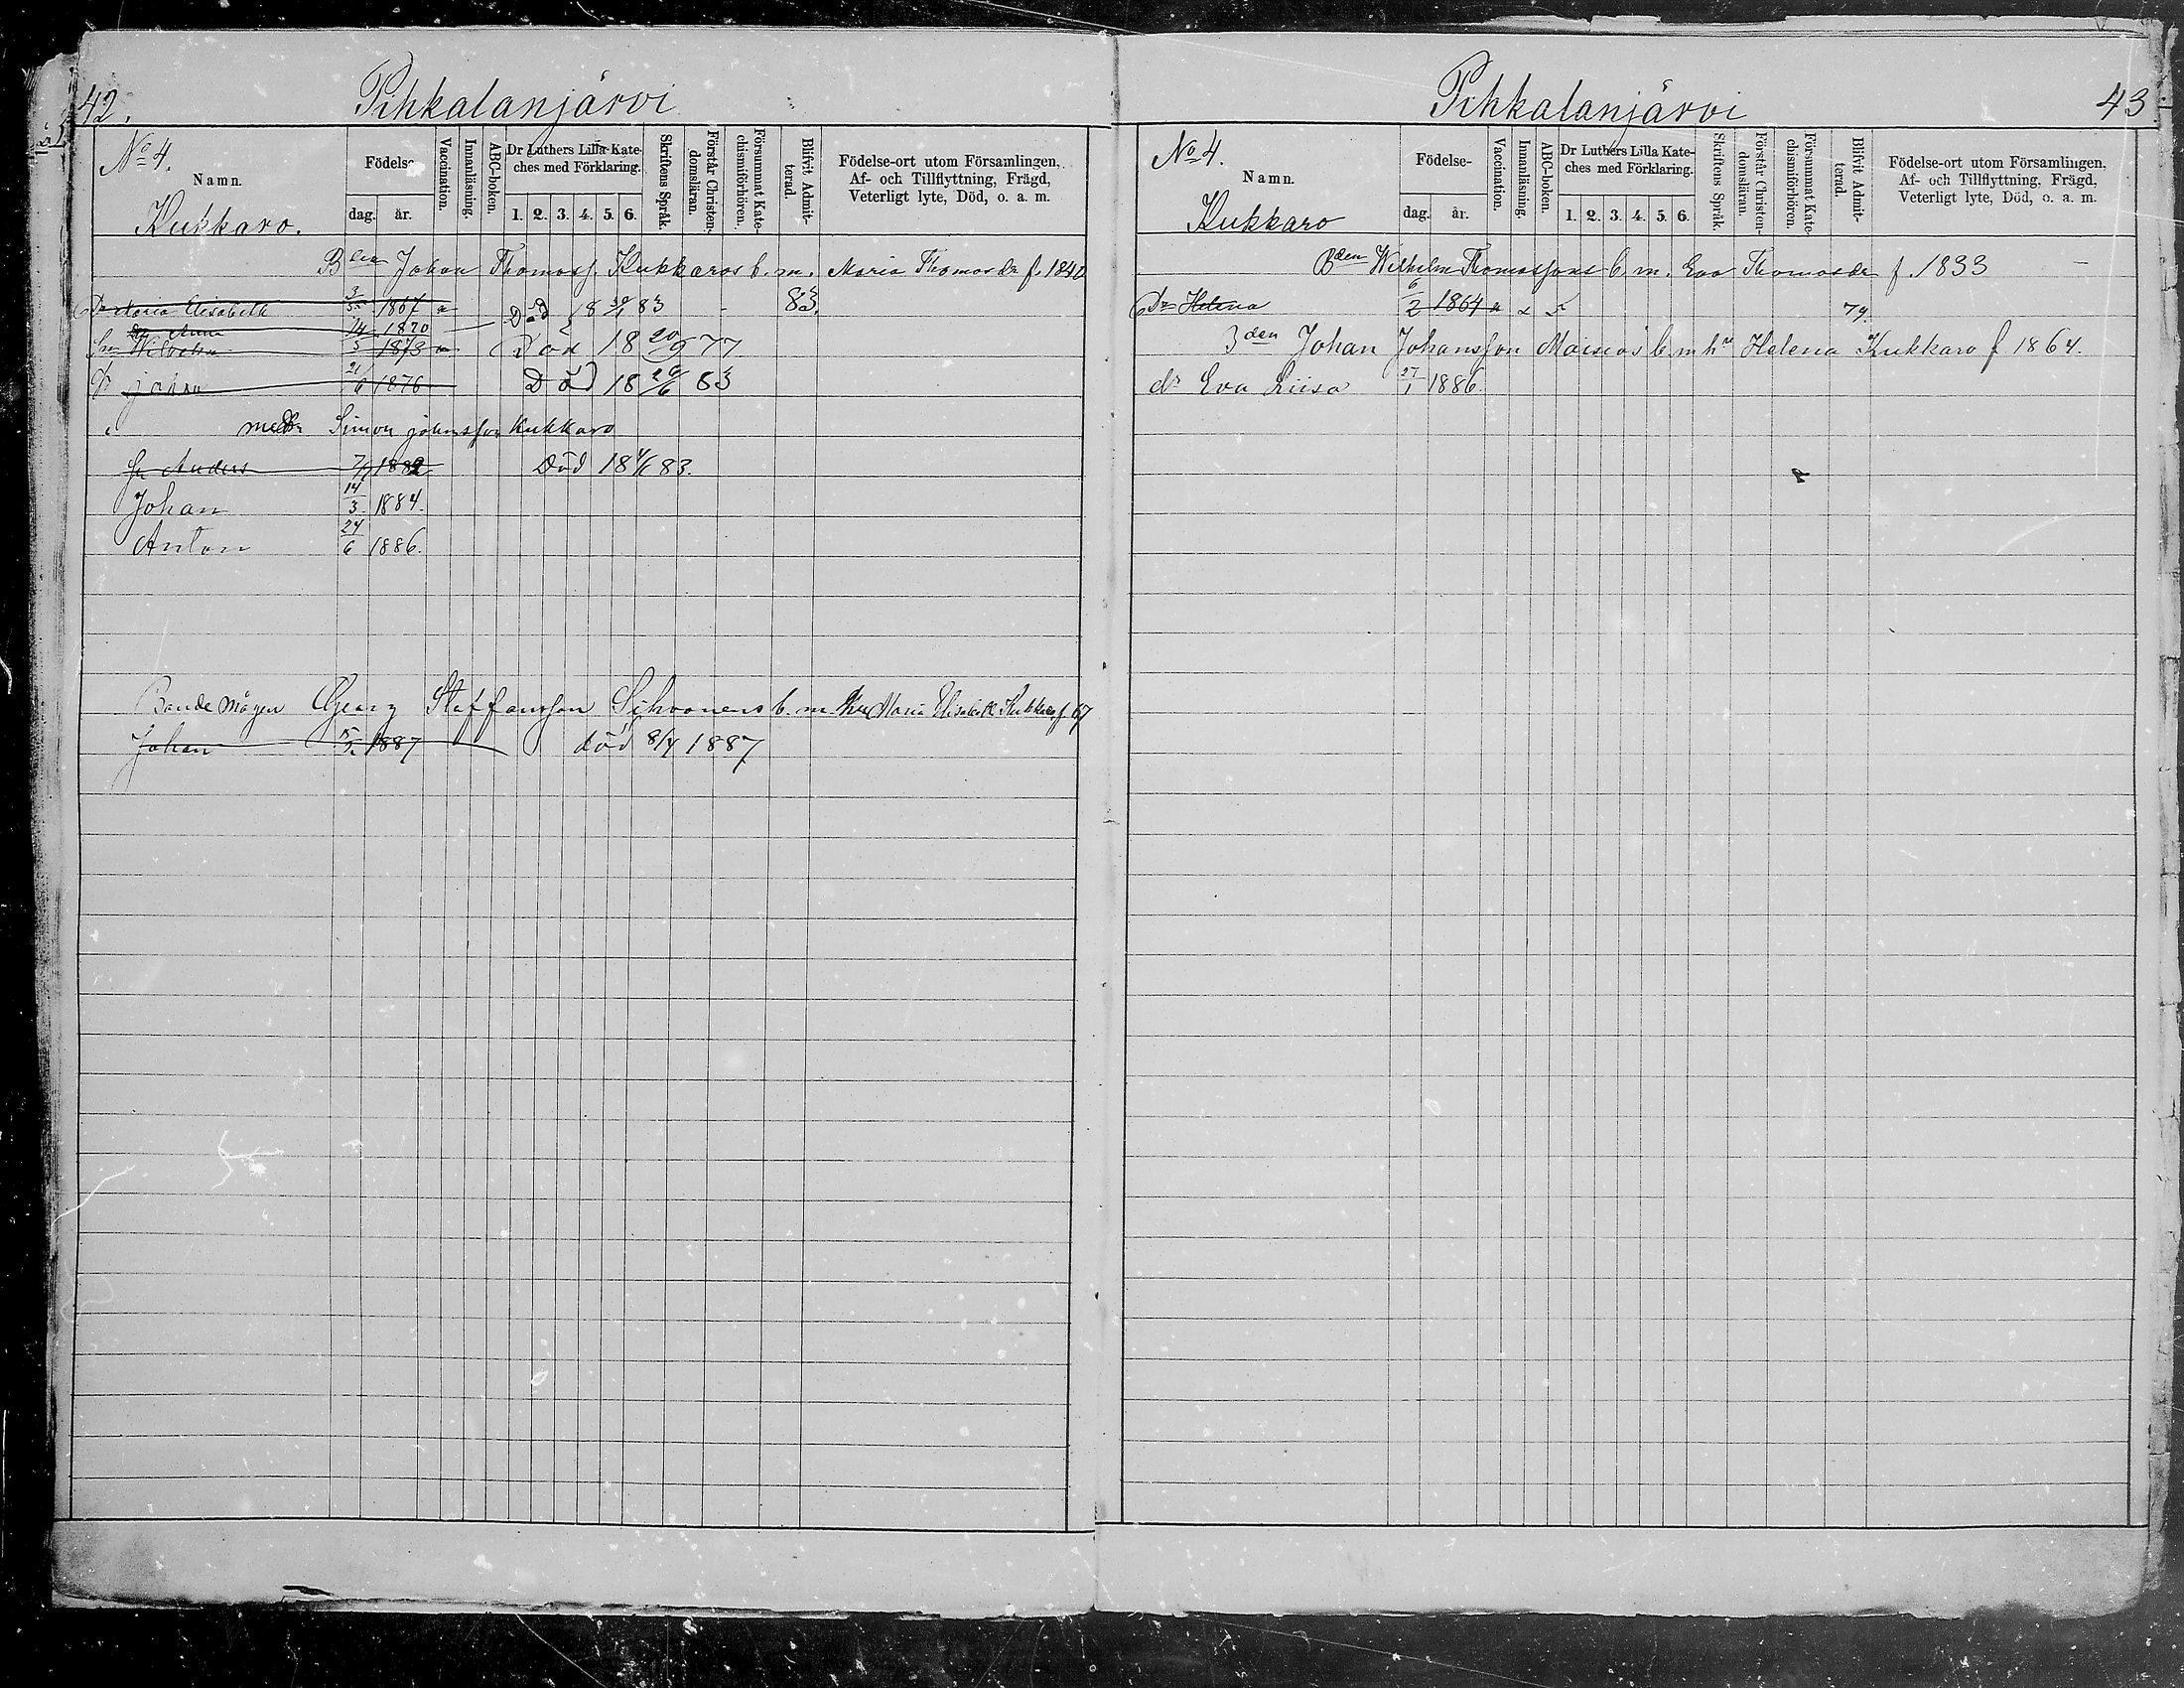 42.
Pihkalanjärvi
No 4.
Namn.
Kukkaro.
Födelse-
dag. år.
Vaccination.
Innanläsning.
ABC-boken.
Dr Luthers Lilla Kate-
ches med Förklaring.
1. 2. 3. 4. 5. 6.
Skriftens Språk.
Förstår Christen-
domsläran.
Försummat Kate-
chismiförhören.
Blifvit Admit-
terad.
Födelse-ort utom Församlingen,
Af- och Tillflyttning, Frägd,
Veterligt lyte, Död, o. a. m.
Bden Johan Thomass. Kukkaros b. m. Maria Thomasdr f. 1840
Dr Maria Elisabeth 1867 83.
Dr Anna 14/1 1870 Död 18 30/1 83
Son Wilhelm 1873 Död 18 20/9 77
Dr 21/6 1876 Död 18 29/6 83
Simon johansson Kukkaro
Sn Anders 7/9 1882 Död 18 4/1 83.
Johan 14/3 1884.
Anton 24/6 1886.
Bonde mågen Georg Staffansson Sihvonens b. m. Maria Elisabeth Kukkaro f 67
Johan 1887 död 8/4 1887
Pihkalanjärvi
43.
No 4.
Namn.
Kukkaro
Födelse-
dag. år.
Vaccination.
Innanläsning.
ABC-boken.
Dr Luthers Lilla Kate-
ches med Förklaring.
1. 2. 3. 4. 5. 6.
Skriftens Språk.
Förstår Christen-
domsläran.
Försummat Kate-
chismiförhören.
Blifvit Admit-
terad.
Födelse-ort utom Församlingen,
Af- och Tillflyttning, Frägd,
Veterligt lyte, Död, o. a. m.
Bden Wilhelm Thomassons b. m. Eva Thomasdr f. 1833
Dr Helena 6/2 1864 79.
Bden Johan Johansson Moisios b. m. hu Helena Kukkaro f 1864.
dr Eva Liisa 27/1 1886.